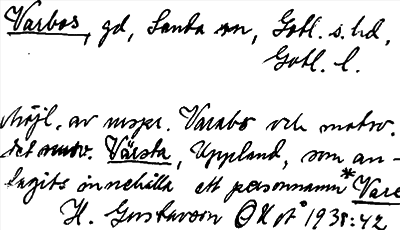 Varbos, gd, Sanda sn, Gotl. s. hd,
Gotl. l.
Möjl. av urspr. Varabo och motsv.
det Värsta, Uppland, som an-
tagits innehålla ett personnamn *Vare
H. Gustavson 1938:42